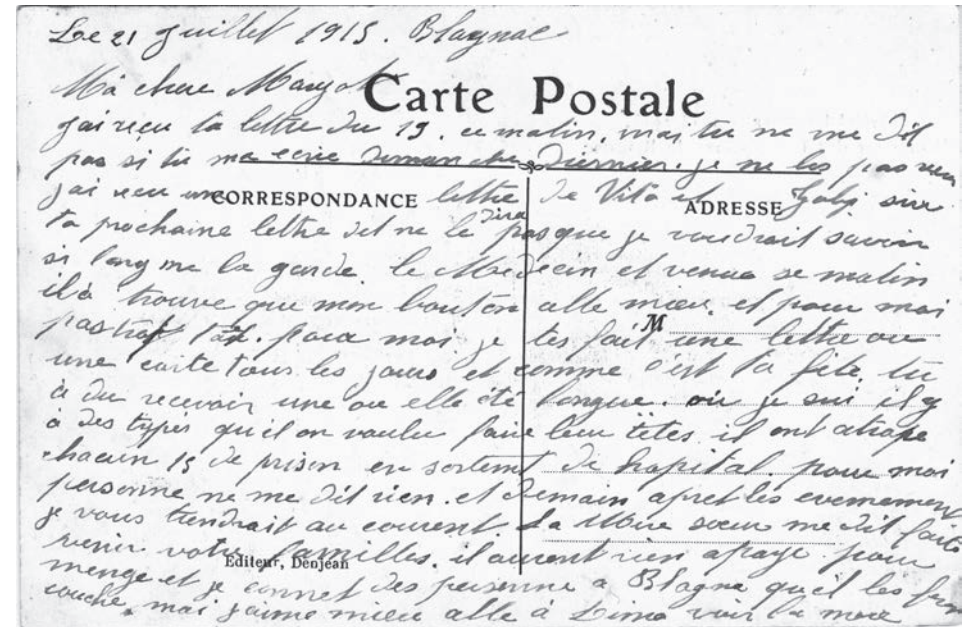 Le 21 Juillet 1915. Blagnac
Ma chere Margot
Carte Postale
jai recu ta lettre du 19. ce matin. mai tu ne me dit
pas si tu ma ecrie Dimanche Dernier. je ne les pas recu
jai recu une lettre de Vita et
CORRESPONDANCE
ADRESSE
ta prochaine lettre dit ne le dira pas que je voudrait savoir
si long me la garde le Medecin et venue se matin
il à trouve que mon bouton alle mieu. et pour moi
M
pas trop tot. pour moi je tes fait une lettre ou
une carte tous les jours et comme c'est ta fete tu
à du recevoir une ou elle été longue. où je sui il y
à des types qu'il on voulu faire leur têtes. il ont atrape
chacun 15 de prison en sortent de hopital. pour moi
personne ne me dit rien. et demain apret les evenement
je vous tiendrait au courent. La Mere sœur me dit faite
venir votre familles. il auront rien a paye pour
Editeur, Denjean
menge et je connet des personne a Blagna qu'il les feron
couche. mai j'aime mieu alle à voir la mere